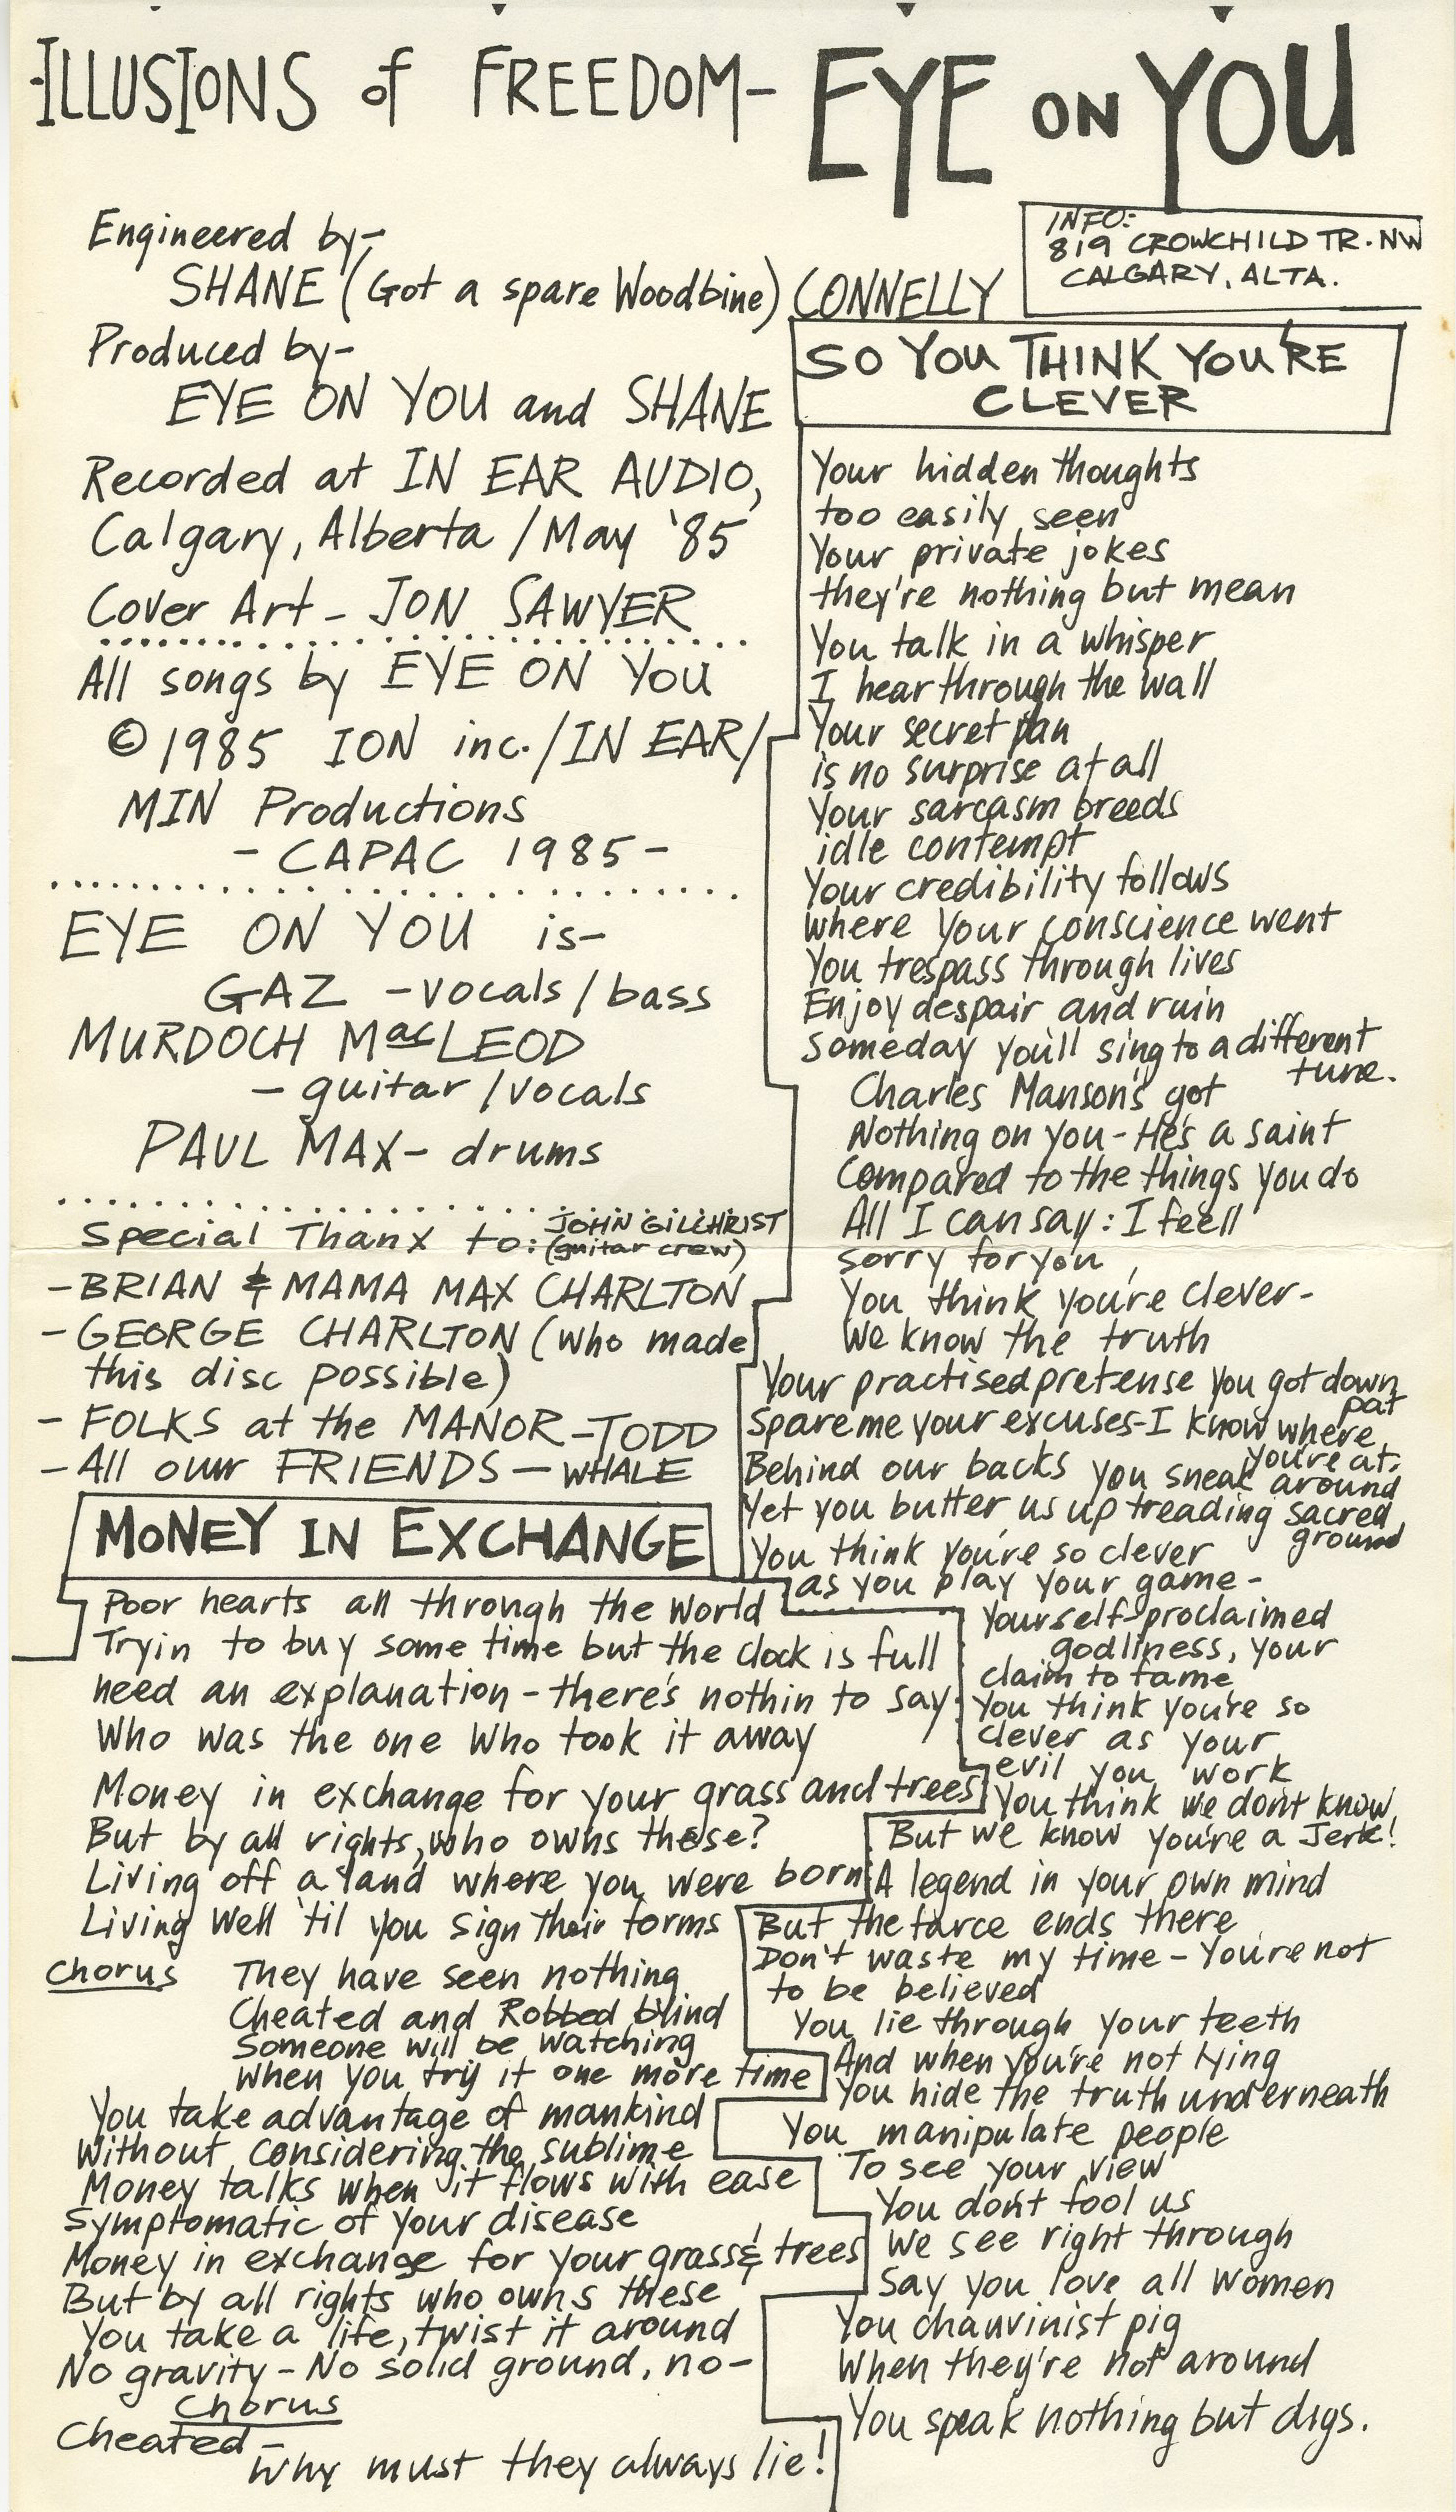 ILLUSIONS of FREEDOM- EYE ON YOU
Engineered by-
SHANE (Got a spare Woodbine) CONNELLY
Produced by-
EYE ON YOU and SHANE
Recorded at IN EAR AUDIO,
Calgary, Alberta / May '85
Cover Art - JON SAWYER
All songs by EYE ON YOU
© 1985 ION inc. / IN EAR /
MIN Productions
- CAPAC 1985 -
EYE ON YOU is-
GAZ - vocals / bass
MURDOCH MacLEOD
- guitar / vocals
PAUL MAX - drums
Special Thanx to: JOHN GILCHRIST
(guitar crew)
- BRIAN & MAMA MAX CHARLTON
- GEORGE CHARLTON (who made
this disc possible)
- FOLKS at the MANOR - TODD
- All our FRIENDS - WHALE
MONEY IN EXCHANGE
Poor hearts all through the world
Tryin to buy some time but the clock is full
need an explanation - there's nothin to say
Who was the one who took it away
Money in exchange for your grass and trees
But by all rights, who owns these?
Living off a land where you were born
Living well 'til you sign their forms
Chorus They have seen nothing
Cheated and Robbed blind
Someone will be watching
When you try it one more time
You take advantage of mankind
Without considering the sublime
Money talks when it flows with ease
Symptomatic of your disease
Money in exchange for your grass & trees
But by all rights who owns these
You take a life, twist it around
No gravity - No solid ground, no-
Chorus
Cheated -
Why must they always lie!
INFO:
819 CROWCHILD TR. NW
CALGARY, ALTA.
SO YOU THINK YOU'RE
CLEVER
Your hidden thoughts
too easily seen
Your private jokes
they're nothing but mean
You talk in a whisper
I hear through the wall
Your secret
is no surprise at all
Your sarcasm breeds
idle contempt
Your credibility follows
where your conscience went
You trespass through lives
Enjoy despair and ruin
Someday you'll sing to a different
tune.
Charles Manson's got
Nothing on you - He's a saint
Compared to the things you do
All I can say: I feel
sorry for you
You think you're clever-
We know the truth
Your practised pretense you got down
pat
Spare me your excuses - I know where
you're at.
Behind our backs you sneak around
Yet you butter us up treading sacred
ground
You think you're so clever
as you play your game -
Your self-proclaimed
godliness, your
claim to fame
You think you're so
clever as your
evil you work
You think we don't know
But we know you're a Jerk!
A legend in your own mind
But the farce ends there
Don't waste my time - You're not
to be believed
You lie through your teeth
And when you're not lying
You hide the truth underneath
You manipulate people
To see your view
You don't fool us
We see right through
Say you love all women
You chauvinist pig
When they're not around
You speak nothing but digs.